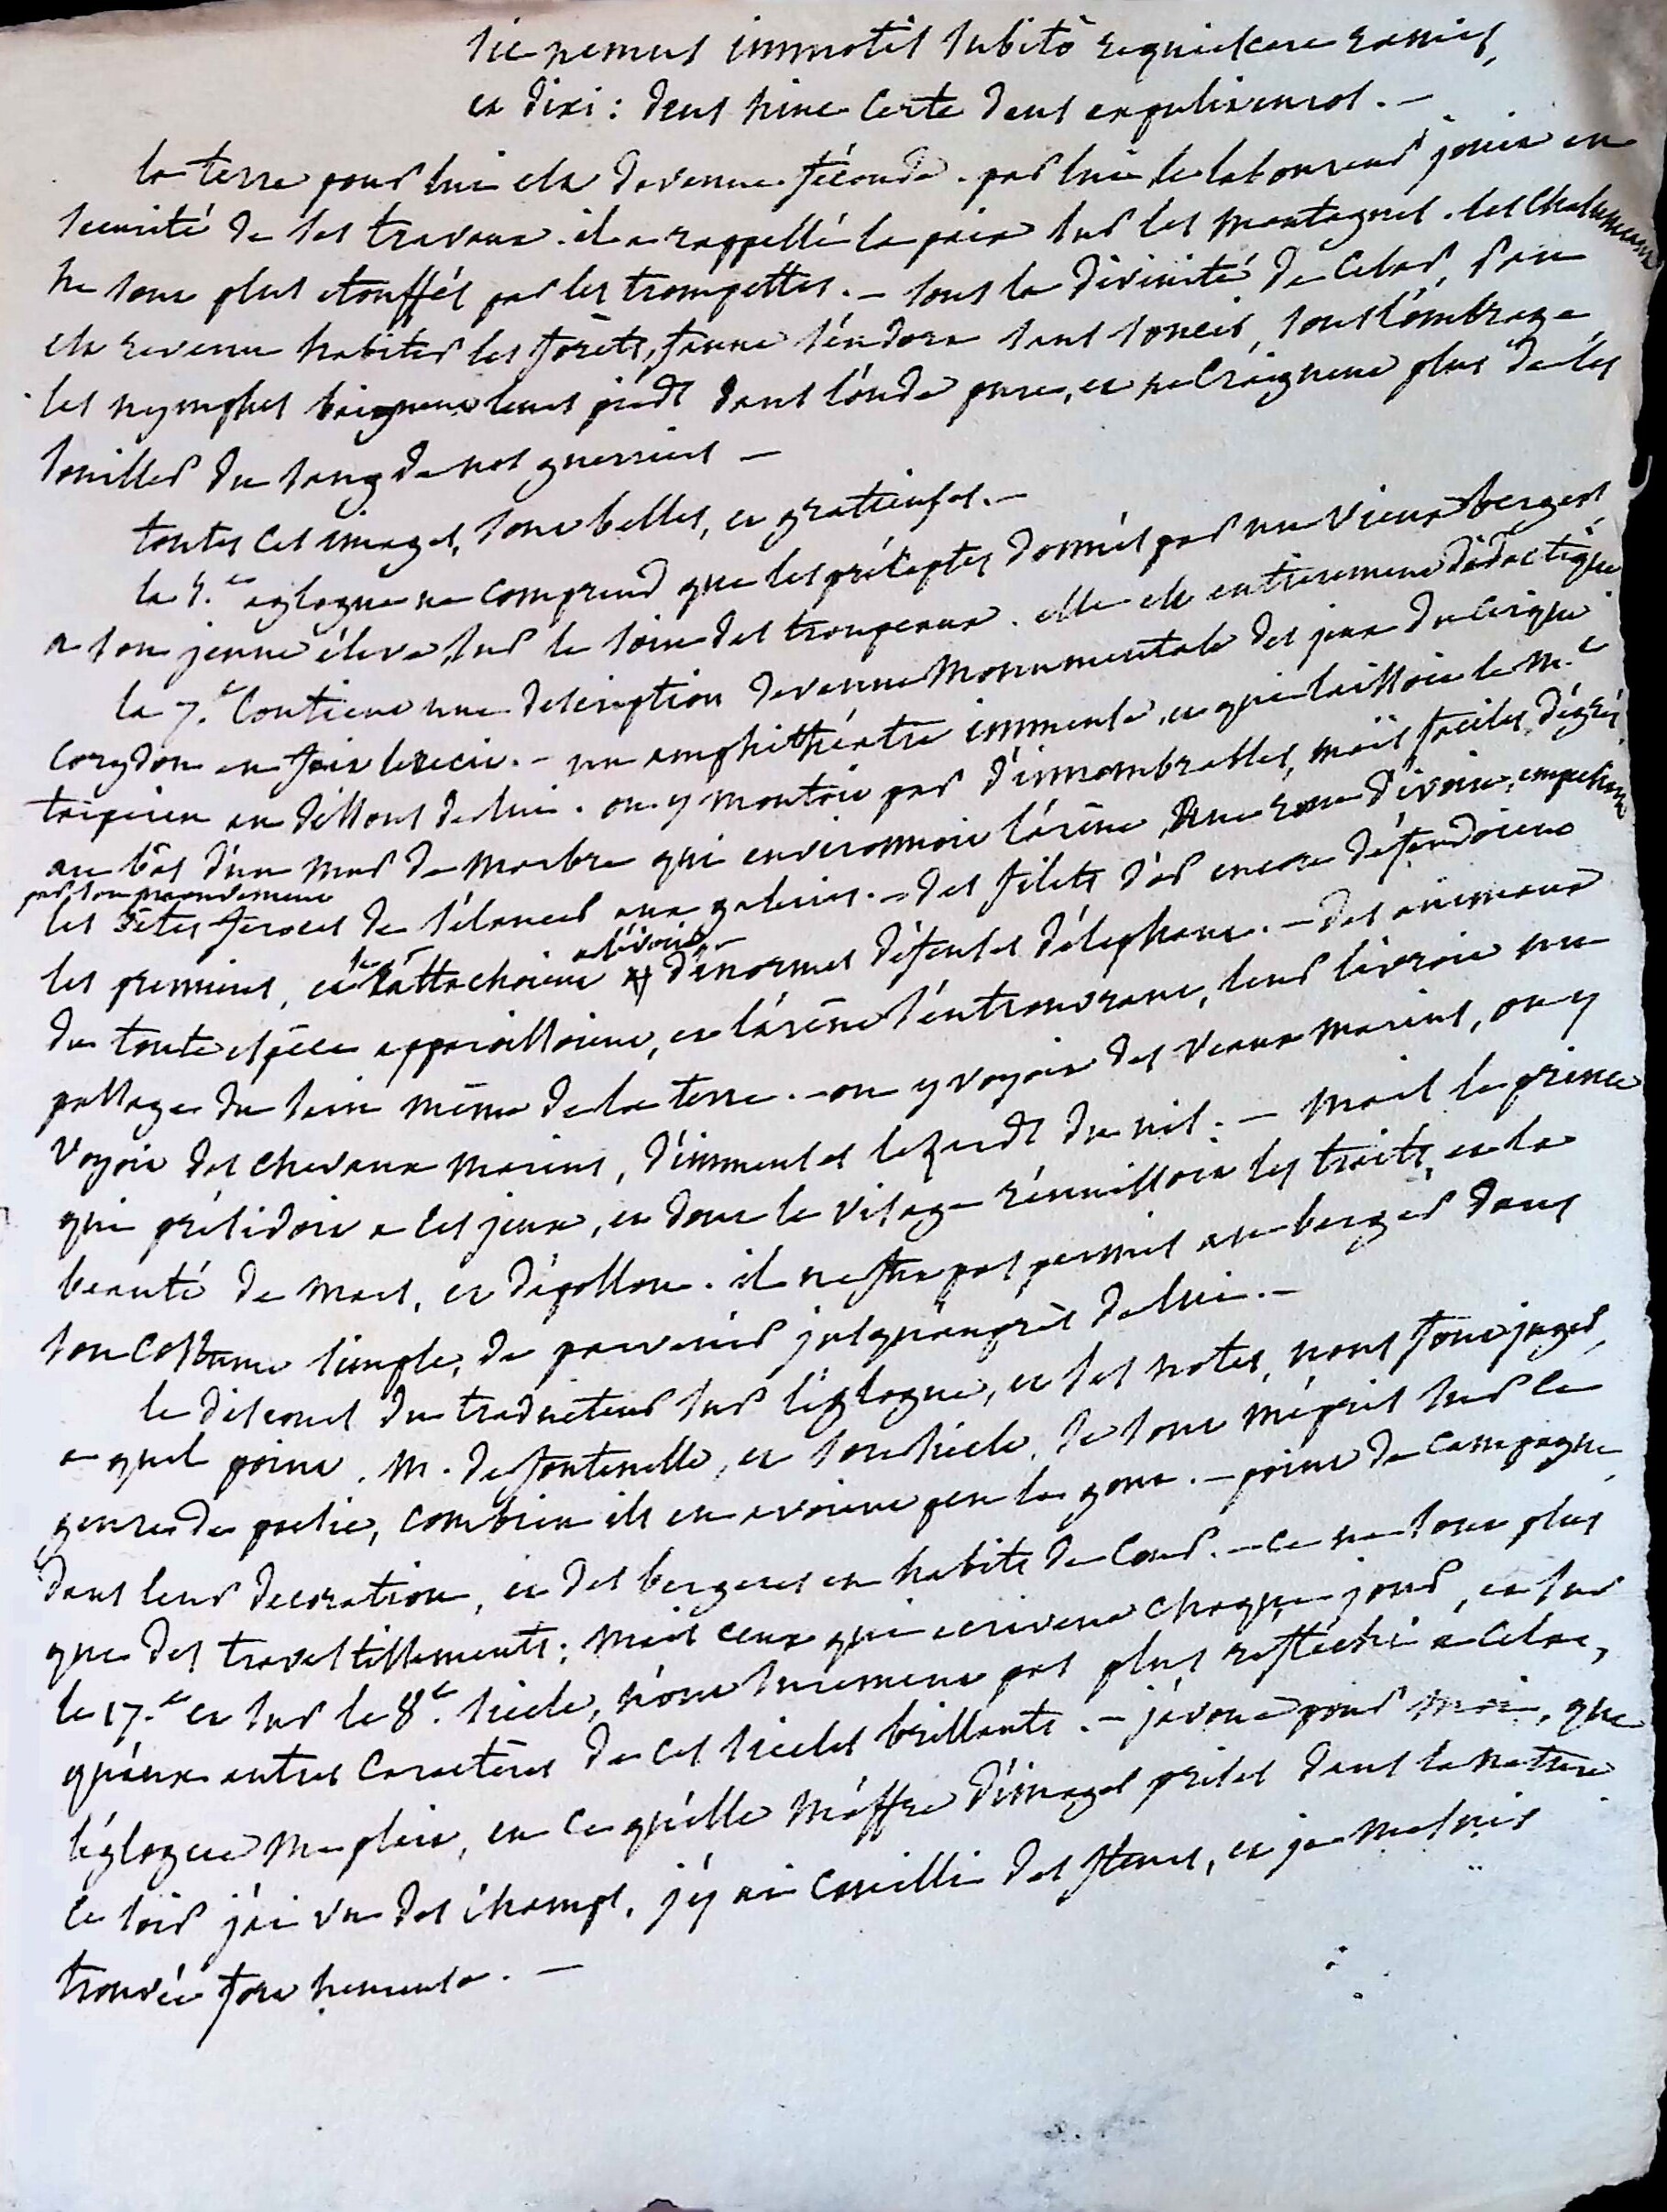 sic nemus immotis subitò requiescere ramis,
et dixi : deus hinc certe deus expulit euros. —
la terre pour lui est devenue féconde. par lui le laboureur jouit en
securité de ses travaux. il a rappellé la paix sur les montagnes. les chalumeaux
ne sont plus étouffés par les trompettes. — sous la divinité de César, pan
est revenu habiter les forêts, faune s'endort sans soucis, sous l'ombrage
les nymphes baignent leurs pieds dans l'onde pure, et ne craignent plus de les
souiller du sang de nos guerriers —
toutes ces images, sont belles, et gratieuses. —
la 5.e eglogue ne comprend que les préceptes donnés par un vieux berger
a son jeune éleve, sur le soin des troupeaux. elle est entierement didactique
la 7.e contient une description devenue monumentale des jeux du cirque
Corydon en fait le recit. — un amphithéatre immense, et qui laissoit le m.t
tarpeien au dessous de lui. on y montoit par d'innombrables, mais faciles dégrés
au bas d'un mur de marbre qui environnoit l'aréne, une roue d'ivoire, empechoit
par son mouvement
les bêtes feroces de s'élancer aux galeries. — des filets d'or encore défendoient
les premiers, et s'attachoient a d'énormes défenses d'élephant. — des animaux
de toute espéce apparoissoient, et l'aréne s'entrouvrant, leur livroit un
passage du sein même de la terre. — on y voyoit des veaux marins, on y
voyoit des chevaux marins, d'immenses lezards du nil. — mais le prince
qui présidoit a ces jeux, et dont le visage réunissoit les traits, et la
beauté de mars, et d'apollon. il ne fut pas permis au berger dans
son costume simple, de parvenir jusqu'auprès de lui. —
le discours du traducteur sur l'églogue, et ses notes, nous font juger,
a quel point, M. de fontenelle, et son siecle, se sont mépris sur ce
genre de poesie, combien ils en avoient peu le gout. — point de campagne
dans leur decoration, et des bergeres en habits de cour. — ce ne sont plus
que des travestissements ; mais ceux qui ecrivent chaque jour, et sur
le 17.e et sur le 8.e siecle, n'ont surement pas plus réfléchi a cela,
qu'aux autres caractères de ces siecles brillants. — j'avoue pour moi, que
l'églogue me plait, en ce qu'elle m'offre d'images prises dans la nature
ce soir j'ai vu des champs, j'y ai cueilli des fleurs, et je me suis
trouvée fort heureuse. —